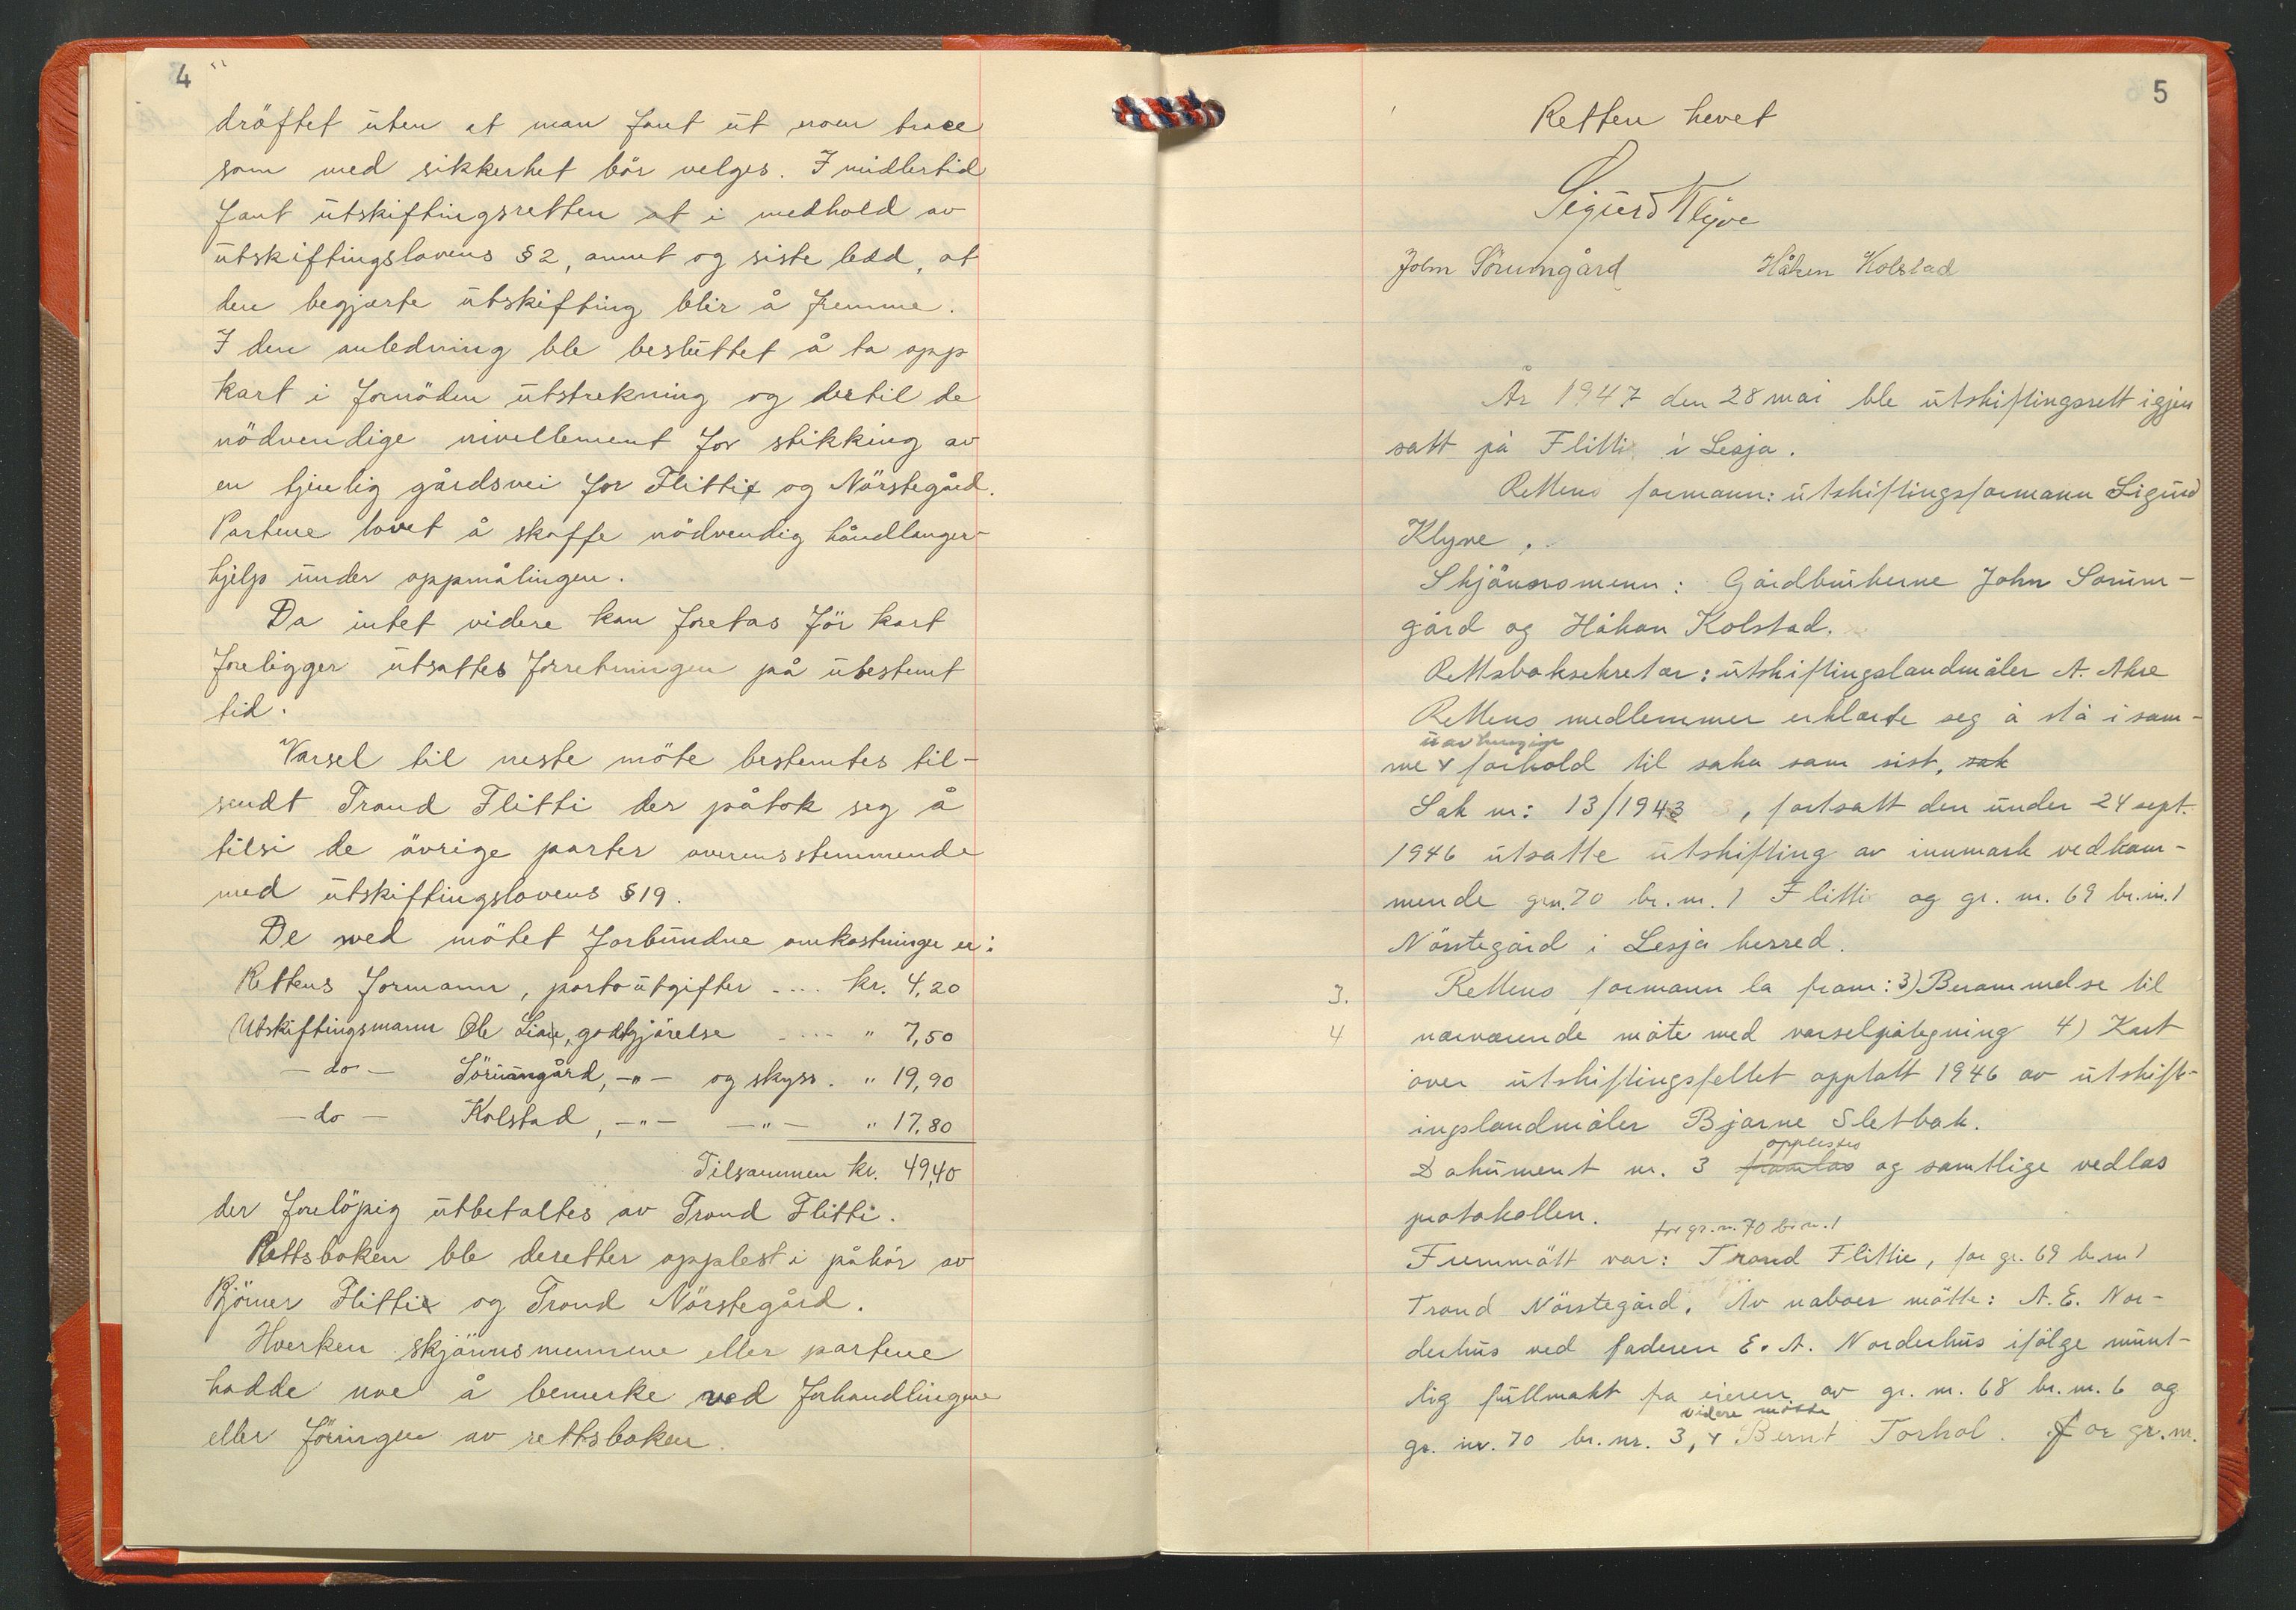 4
dröftet uten at man fant ut noen trace
som med sikkerhet bör velges. Imidlertid
fant utskiftingsretten at i medhold av
utskiftingslovens § 2, annet og siste ledd, at
den begjærte utskifting blir å fremme.
I den anledning ble besluttet å ta opp
kart i fornöden utstrekning og dertil de
nödvendige nivellement for stikking av
en tjenlig gårdsvei for Flittie og Nörstegård.
Partene lovet å skaffe nödvendig håndlanger-
hjelp under oppmålingen.
Da intet videre kan foretas för kart
foreligger utsattes forretningen på ubestemt
tid.
Varsel til neste möte bestemtes til-
sendt Trond Flitti der påtok seg å
tilsi de övrige parter overensstemmende
med utskiftingslovens § 19.
De ved mötet forbundne omkostninger er:
Rettens formann, portoutgifter .... kr. 4,20
Utskiftingsmann Ole Lian, godtgjörelse .... " 7,50
- do - Sörumgård, -"- og skyss. " 19,90
- do - Kolstad, -"- -"- " 17,80
Tilsammen kr. 49,40
der forelöpig utbetaltes av Trond Flitti.
Rettsboken ble deretter opplest i påhör av
Björner Flittie og Trond Nörstegård.
Hverken skjönnsmennene eller partene
hadde noe å bemerke ved forhandlingene
eller föringen av rettsboken.
5
Retten hevet
Sigurd Klyve
John Sörumgård Håken Kolstad
År 1947 den 28 mai ble utskiftingsrett igjen
satt på Flitti i Lesja.
Rettens formann: utskiftingsformann Sigurd
Klyve.
Skjönnsmenn: Gårdbrukerne John Sorum-
gård og Håkon Kolstad.
Rettsboksekretær: utskiftingslandmåler A. Akre
Rettens medlemmer erklærte seg å stå i sam-
uavhengige
me v forhold til saka som sist, sak
Sak nr: 13/1943, fortsatt den under 24 sept.
1946 utsatte utskifting av innmark vedkom-
mende grn. 70 br. nr. 1 Flitti og gr. nr. 69 br. nr. 1
Nörstegård i Lesja herred.
3. Rettens formann la fram: 3) Berammelse til
4 nærværende möte med varselpåtegning 4) Kart
over utskiftingsfeltet opptatt 1946 av utskift-
ingslandmåler Bjarne Sletbak.
opplestes
Dokument nr. 3 framlas og samtlige vedlas
protokollen.
for gr. nr. 70 br. nr. 1
Fremmött var: Trond Flittie, for gr. 69 br. nr 1
Trond Nörstegård. Av naboer mötte: A. E. Nor-
derhus ved faderen E. A. Norderhus ifölge munt-
lig fullmakt fra eieren av gr. nr. 68 br. nr. 6 og
videre mötte
gr. nr. 70 br. nr. 3, v Bernt Torhol. for gr. nr.